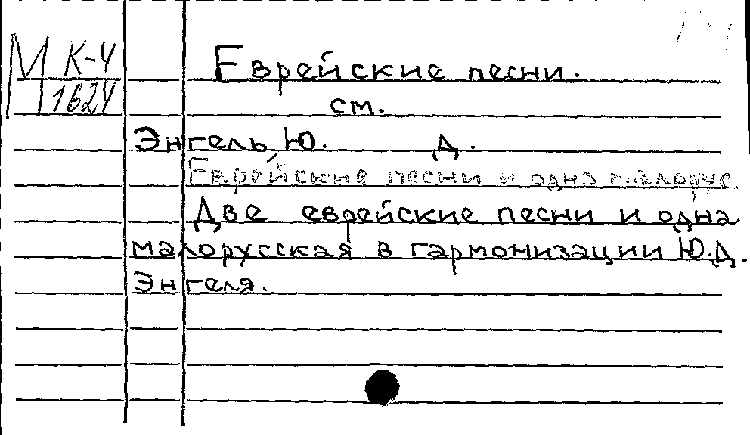 М К-4
1624
Еврейские песни.
см.
Энгель, Ю. Д.
Еврейские песни и одна
Две еврейские песни и одна
малорусская в гармонизации Ю.Д.
Энгеля.